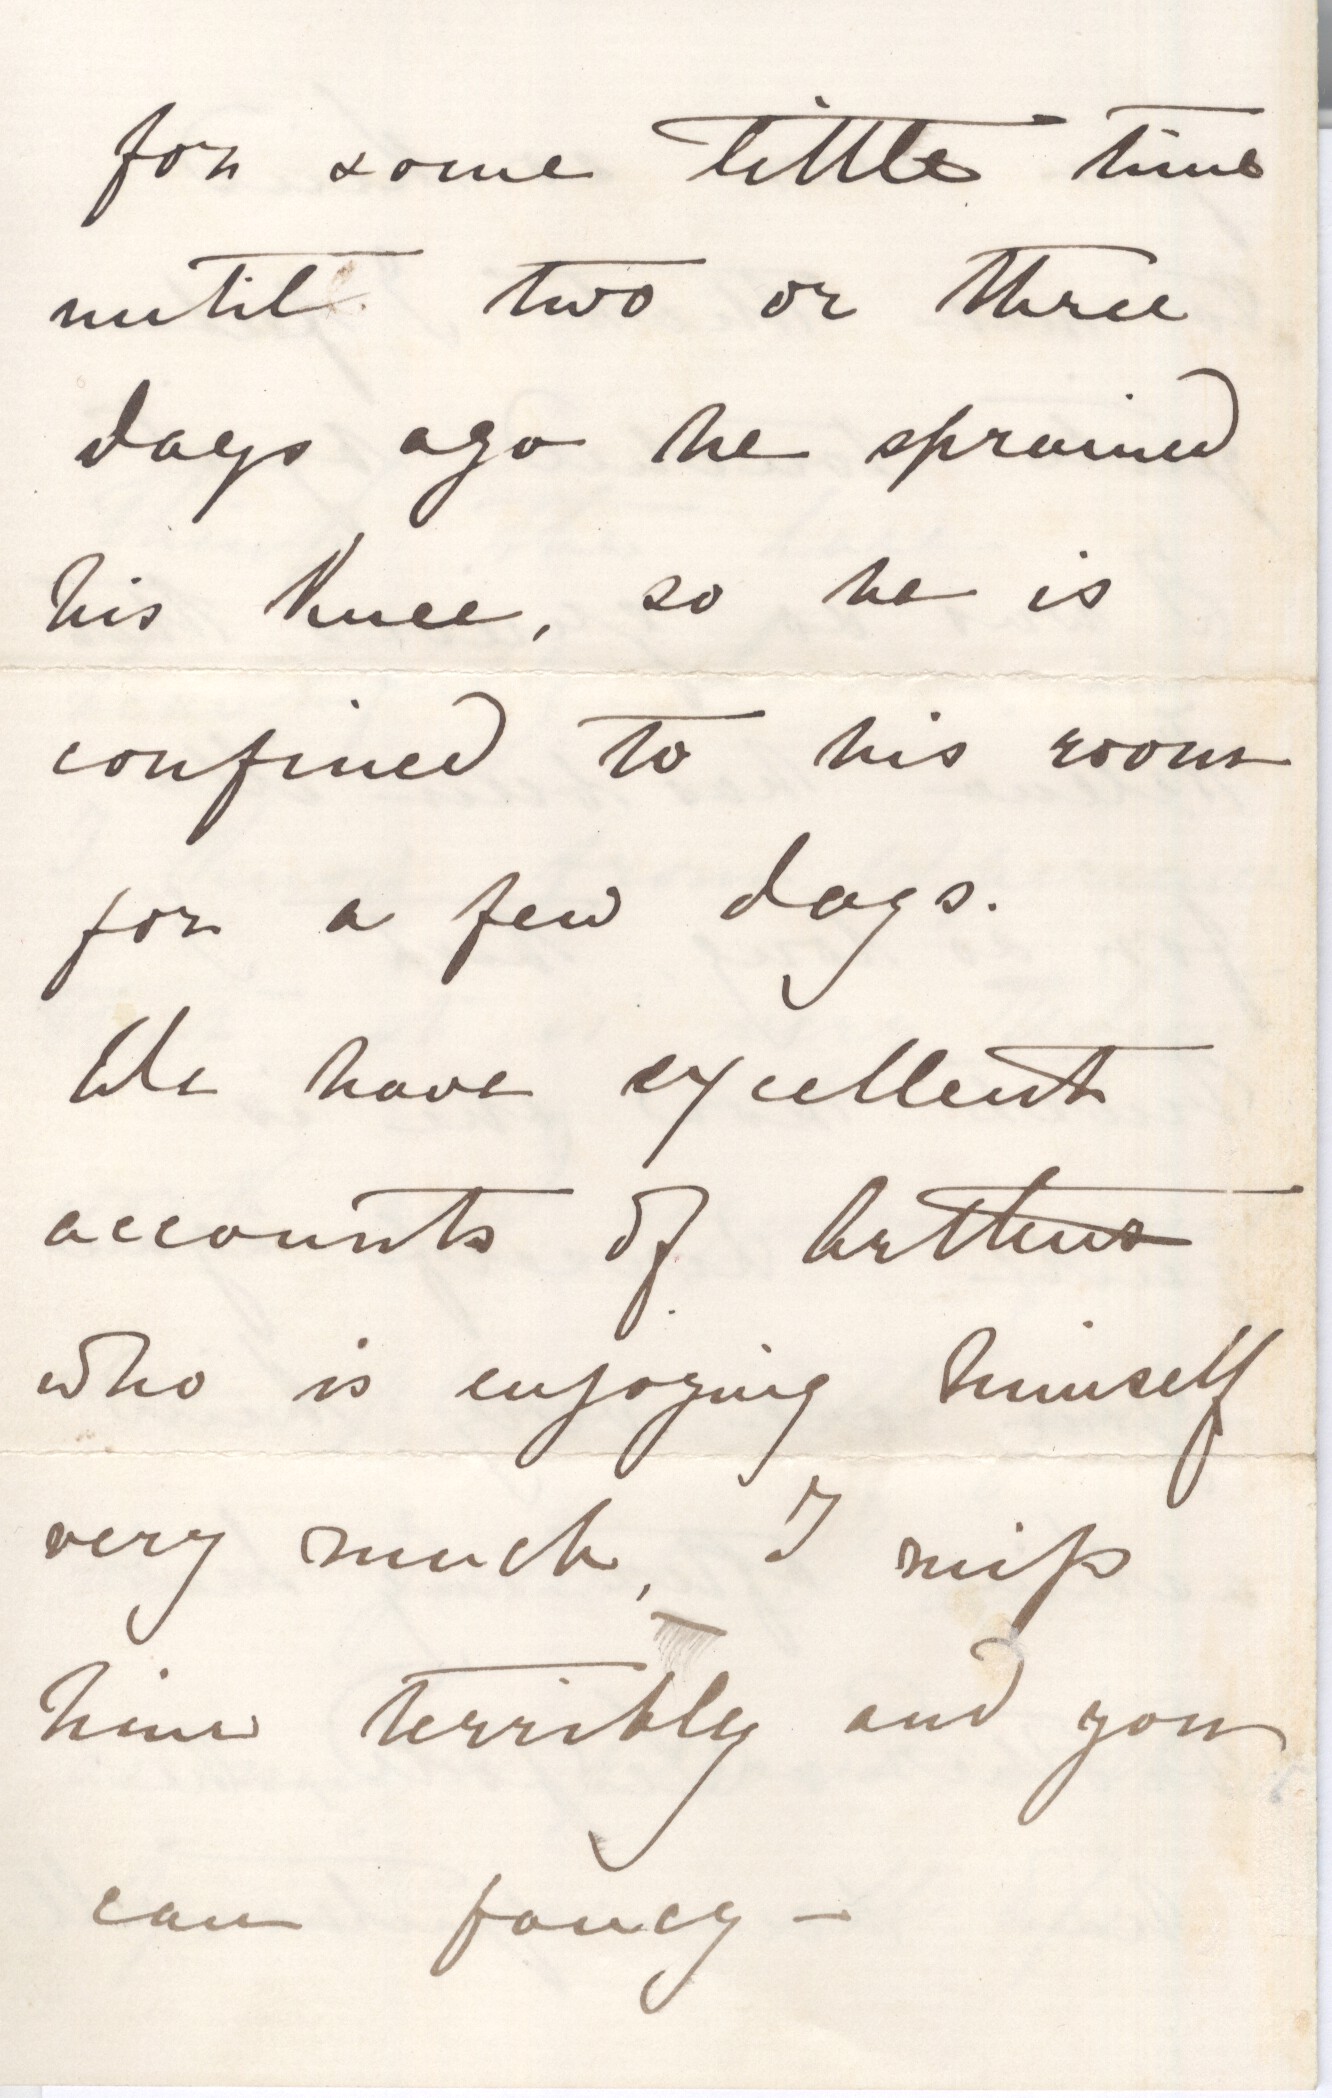 for some little time
until two or three
days ago he sprained
his Knee, so he is
confined to his room
for a few days.
We have excellent
accounts of Arthur
who is enjoying himself
very much, I miss
him terribly and you
can fancy —